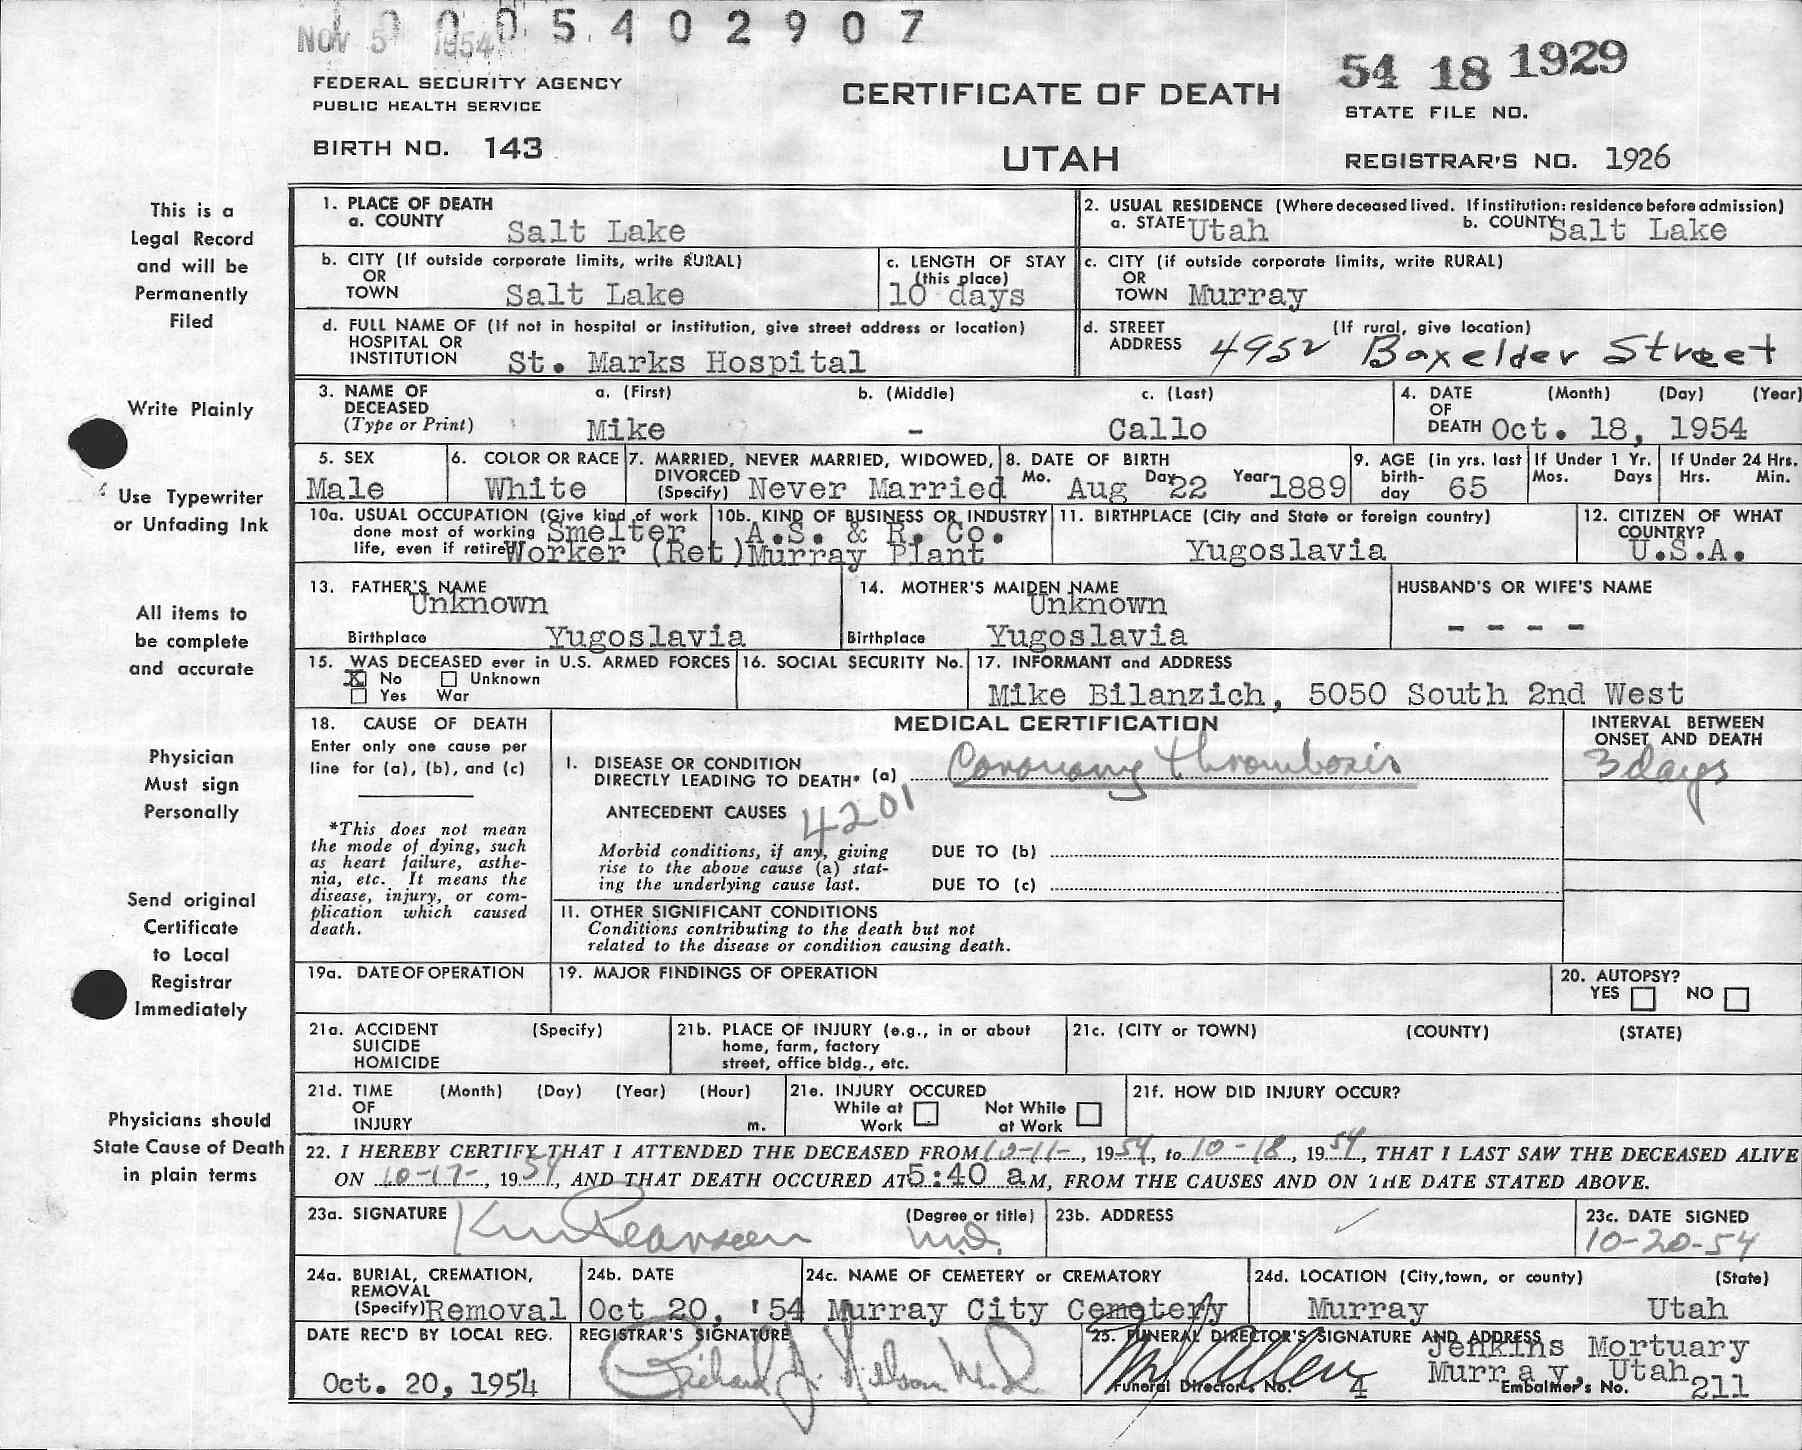 NOV 5 1954
0005402907
54 18 1929
FEDERAL SECURITY AGENCY
PUBLIC HEALTH SERVICE
CERTIFICATE OF DEATH
STATE FILE NO.
BIRTH NO. 143
UTAH
REGISTRAR'S NO. 1926
This is a
Legal Record
and will be
Permanently
Filed
Write Plainly
Use Typewriter
or Unfading Ink
All items to
be complete
and accurate
Physician
Must sign
Personally
Send original
Certificate
to Local
Registrar
Immediately
Physicians should
State Cause of Death
in plain terms
1. PLACE OF DEATH
a. COUNTY Salt Lake
2. USUAL RESIDENCE (Where deceased lived. If institution: residence before admission)
a. STATE Utah b. COUNTY Salt Lake
b. CITY (If outside corporate limits, write RURAL)
OR
TOWN Salt Lake
c. LENGTH OF STAY
(this place)
10 days
c. CITY (if outside corporate limits, write RURAL)
OR
TOWN Murray
d. FULL NAME OF (If not in hospital or institution, give street address or location)
HOSPITAL OR
INSTITUTION St. Marks Hospital
d. STREET (If rural, give location)
ADDRESS 4952 Boxelder Street
3. NAME OF
DECEASED
(Type or Print)
a. (First) b. (Middle) c. (Last)
Mike - Callo
4. DATE (Month) (Day) (Year)
OF
DEATH Oct. 18, 1954
5. SEX
Male
6. COLOR OR RACE
White
7. MARRIED, NEVER MARRIED, WIDOWED,
DIVORCED
(Specify) Never Married
8. DATE OF BIRTH
Mo. Aug Day 22 Year 1889
9. AGE (in yrs. last
birth-
day 65
If Under 1 Yr.
Mos. Days
If Under 24 Hrs.
Hrs. Min.
10a. USUAL OCCUPATION (Give kind of work
done most of working Smelter
life, even if retired Worker (Ret)
10b. KIND OF BUSINESS OR INDUSTRY
A.S. & R. Co.
Murray Plant
11. BIRTHPLACE (City and State or foreign country)
Yugoslavia
12. CITIZEN OF WHAT
COUNTRY?
U.S.A.
13. FATHER'S NAME
Unknown
Birthplace Yugoslavia
14. MOTHER'S MAIDEN NAME
Unknown
Birthplace Yugoslavia
HUSBAND'S OR WIFE'S NAME
- - - -
15. WAS DECEASED ever in U.S. ARMED FORCES
X No Unknown
Yes War
16. SOCIAL SECURITY No.
17. INFORMANT and ADDRESS
Mike Bilanzich, 5050 South 2nd West
18. CAUSE OF DEATH
Enter only one cause per
line for (a), (b), and (c)
*This does not mean
the mode of dying, such
as heart failure, asthe-
nia, etc. It means the
disease, injury, or com-
plication which caused
death.
MEDICAL CERTIFICATION
INTERVAL BETWEEN
ONSET AND DEATH
I. DISEASE OR CONDITION
DIRECTLY LEADING TO DEATH* (a) Coronary thrombosis
3 days
ANTECEDENT CAUSES
4201
Morbid conditions, if any, giving
rise to the above cause (a) stat-
ing the underlying cause last.
DUE TO (b)
DUE TO (c)
II. OTHER SIGNIFICANT CONDITIONS
Conditions contributing to the death but not
related to the disease or condition causing death.
19a. DATE OF OPERATION
19. MAJOR FINDINGS OF OPERATION
20. AUTOPSY?
YES NO
21a. ACCIDENT (Specify)
SUICIDE
HOMICIDE
21b. PLACE OF INJURY (e.g., in or about
home, farm, factory
street, office bldg., etc.
21c. (CITY or TOWN) (COUNTY) (STATE)
21d. TIME (Month) (Day) (Year) (Hour)
OF
INJURY m.
21e. INJURY OCCURED
While at Work
Not While at Work
21f. HOW DID INJURY OCCUR?
22. I HEREBY CERTIFY THAT I ATTENDED THE DECEASED FROM 10-11-, 1954, to 10-18, 1954, THAT I LAST SAW THE DECEASED ALIVE
ON 10-17-, 1954, AND THAT DEATH OCCURED AT 5:40 a M, FROM THE CAUSES AND ON THE DATE STATED ABOVE.
23a. SIGNATURE (Degree or title)
M.D.
23b. ADDRESS
23c. DATE SIGNED
10-20-54
24a. BURIAL, CREMATION,
REMOVAL
(Specify) Removal
24b. DATE
Oct 20, '54
24c. NAME OF CEMETERY or CREMATORY
Murray City Cemetery
24d. LOCATION (City, town, or county) (State)
Murray Utah
DATE REC'D BY LOCAL REG.
Oct. 20, 1954
REGISTRAR'S SIGNATURE
Richard J. Nelson M.D.
25. FUNERAL DIRECTOR'S SIGNATURE AND ADDRESS
Jenkins Mortuary
Murray, Utah
Funeral Director's No. 4
Embalmer's No. 211